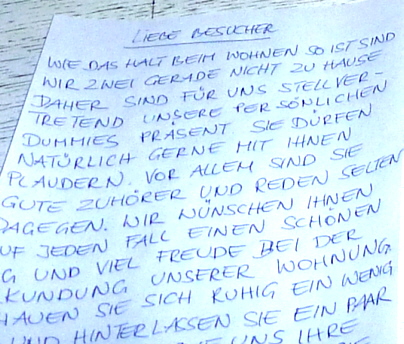 LIEBE BESUCHER
WIE DAS HALT BEIM WOHNEN SO IST SIND
WIR ZWEI GERADE NICHT ZU HAUSE
DAHER SIND FÜR UNS STELLVER-
TRETEND UNSERE PERSÖNLICHEN
DUMMIES PRÄSENT SIE DÜRFEN
NATÜRLICH GERNE MIT IHNEN
PLAUDERN. VOR ALLEM SIND SIE
GUTE ZUHÖRER UND REDEN SELTEN
DAGEGEN. WIR WÜNSCHEN IHNEN
UF JEDEN FALL EINEN SCHÖNEN
G UND VIEL FREUDE BEI DER
KUNDUNG UNSERER WOHNUNG
HAUEN SIE SICH RUHIG EIN WENIG
UND HINTERLASSEN SIE EIN PAAR
UNS IHRE